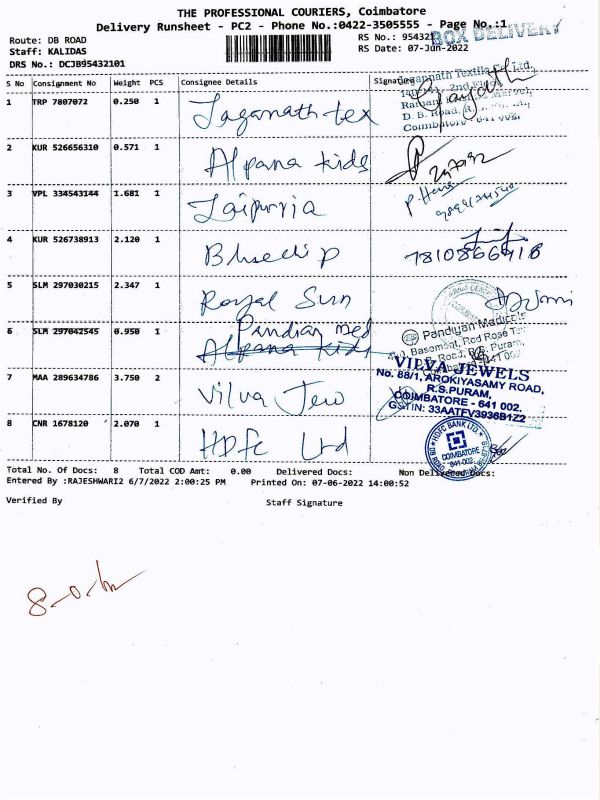 THE PROFESSIONAL COURIERS, Coimbatore
Delivery Runsheet - PC2 - Phone No.:0422-3505555 - Page No.:1
BOX DELIVERY
Route: DB ROAD
RS No.: 954321
Staff: KALIDAS
RS Date: 07-Jun-2022
DRS No.: DCJB95432101
S No Consignment No Weight PCS Consignee Details Signature
1 TRP 7807072 0.250 1 Jagannath tex
Jagannath Textile Co Ltd,
2nd Floor
D. B. Road, R.
Coimbatore
2 KUR 526656310 0.571 1 Alpana kids
3 VPL 334543144 1.681 1 Jaipuria
4 KUR 526738913 2.120 1
5 SLM 297030215 2.347 1 Royal Sun
6 SLM 297042545 0.950 1 Pandian med
Alpana kids
Pandiyan Medicals
Basement, Red Rose
Puram,
7 MAA 289634786 3.750 2 Vilva Jew
VILVA JEWELS
No. 88/1, AROKIYASAMY ROAD,
R.S.PURAM,
COIMBATORE - 641 002.
GSTIN: 33AATFV3936B1Z2
8 CNR 1678120 2.070 1 HDFC Ltd
HDFC BANK LTD.
COIMBATORE
641 002
Total No. Of Docs: 8 Total COD Amt: 0.00 Delivered Docs: Non Delivered Docs:
Entered By :RAJESHWARI2 6/7/2022 2:00:25 PM Printed On: 07-06-2022 14:00:52
Verified By Staff Signature